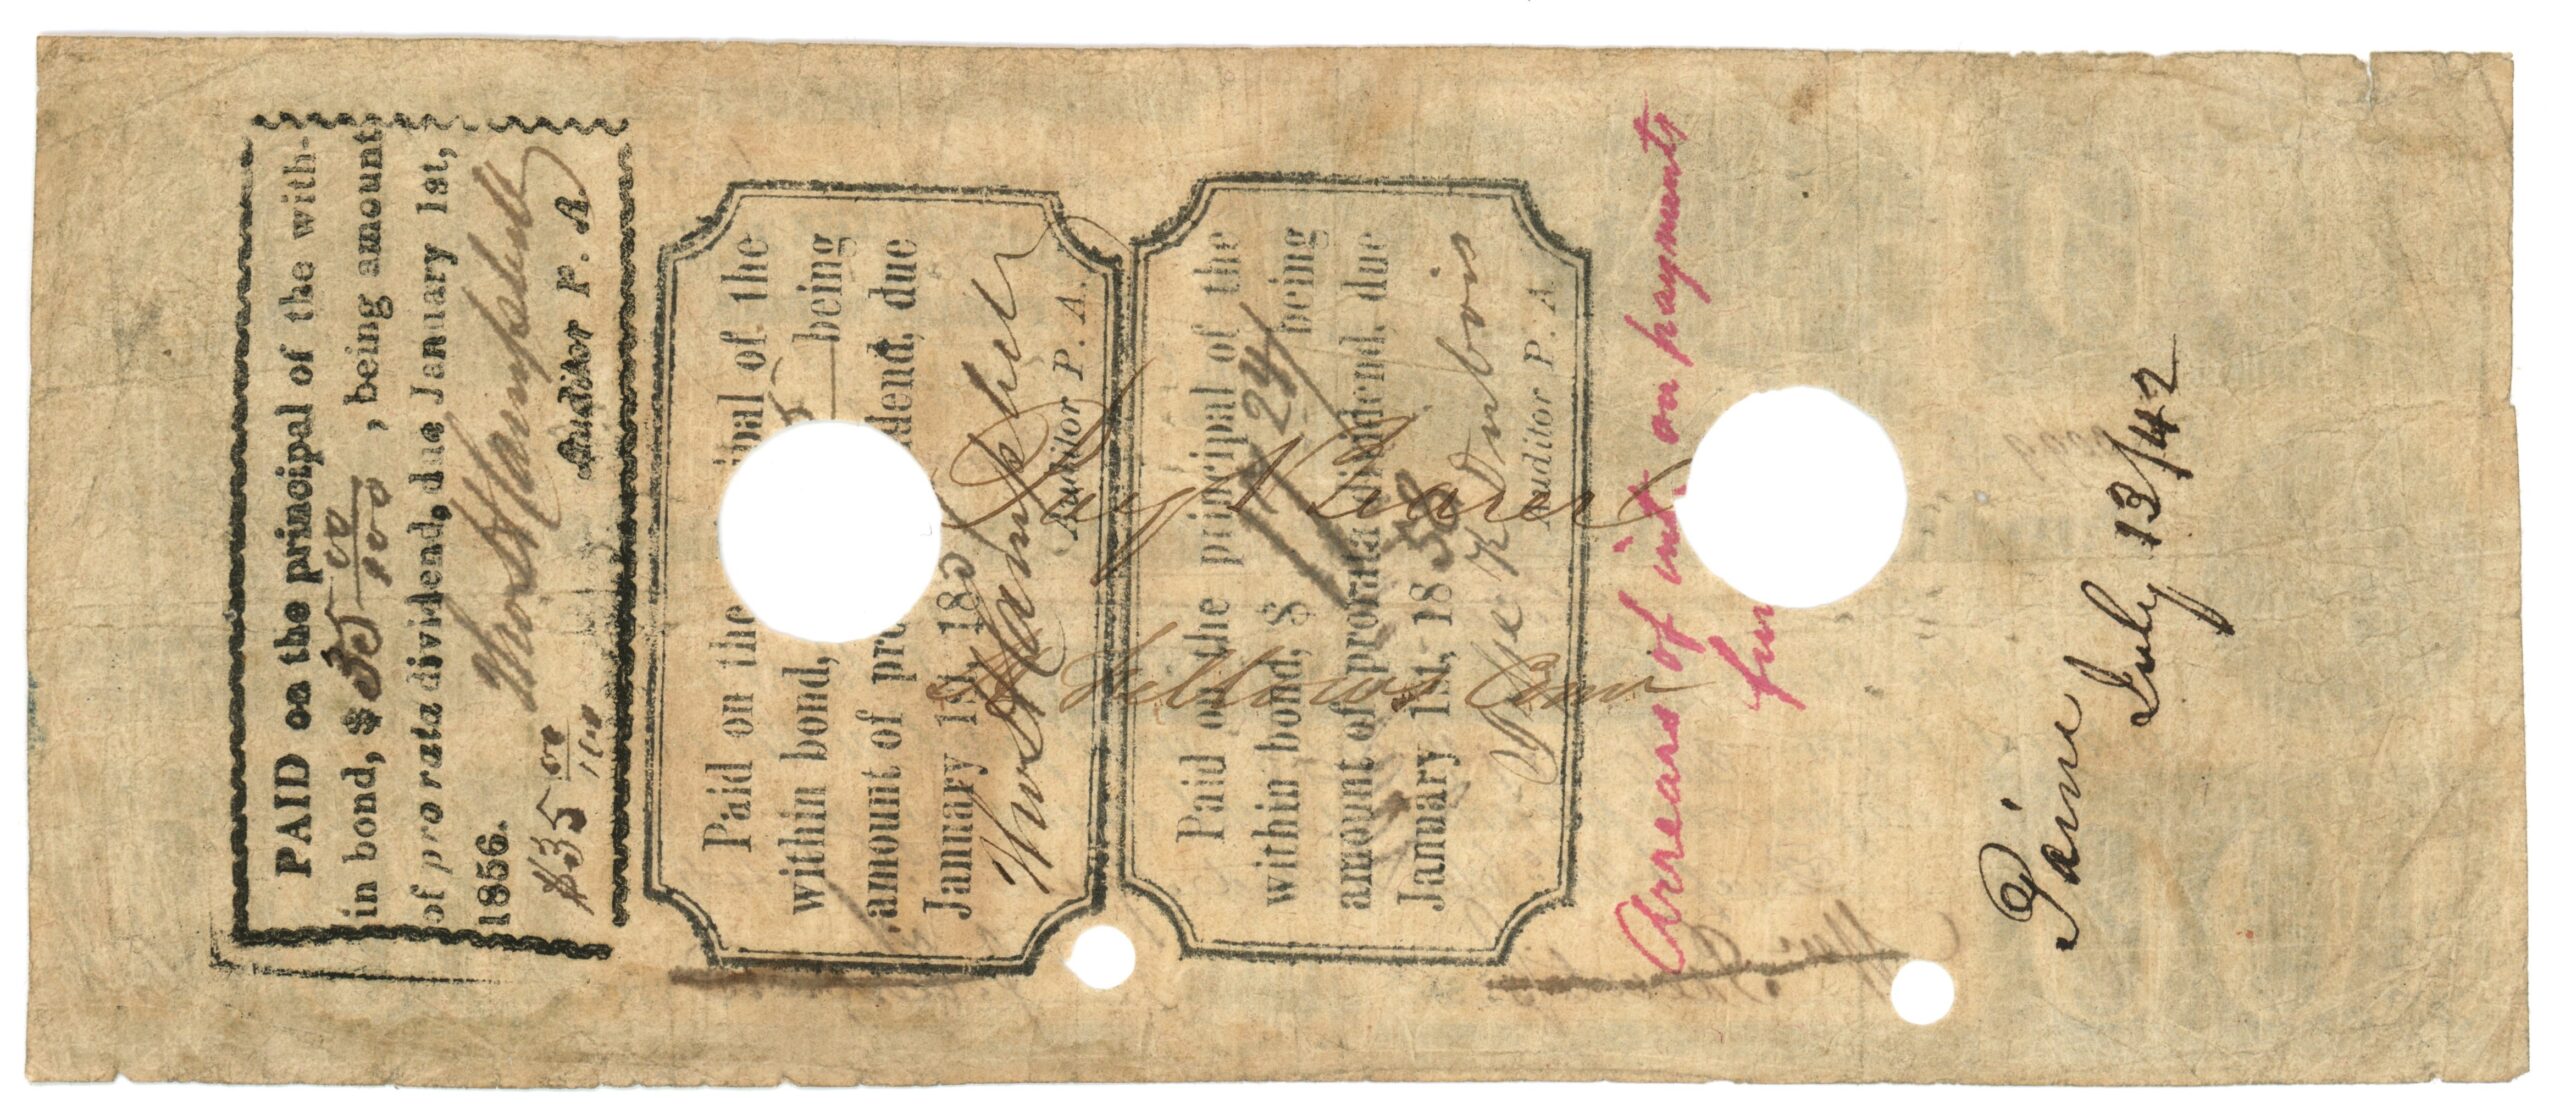 PAID on the principal of the with-
in bond, $ 35 00/100 , being amount
of pro rata dividend, due January 1st,
1856.
Thos H Campbell
Auditor P. A.
$35 00/100
Paid on the ipal of the
within bond, being
amount of pro dend, due
January 1st, 185
Thos H Campbell
Auditor P. A.
Paid on the principal of the
within bond, $ 24/ being
amount of pro rata dividend, due
January 1st, 1858
Jesse K Dubois
Auditor P. A.
Pay Bearer
Fellows
Arrears of int. on payments
Paine
July 13/42